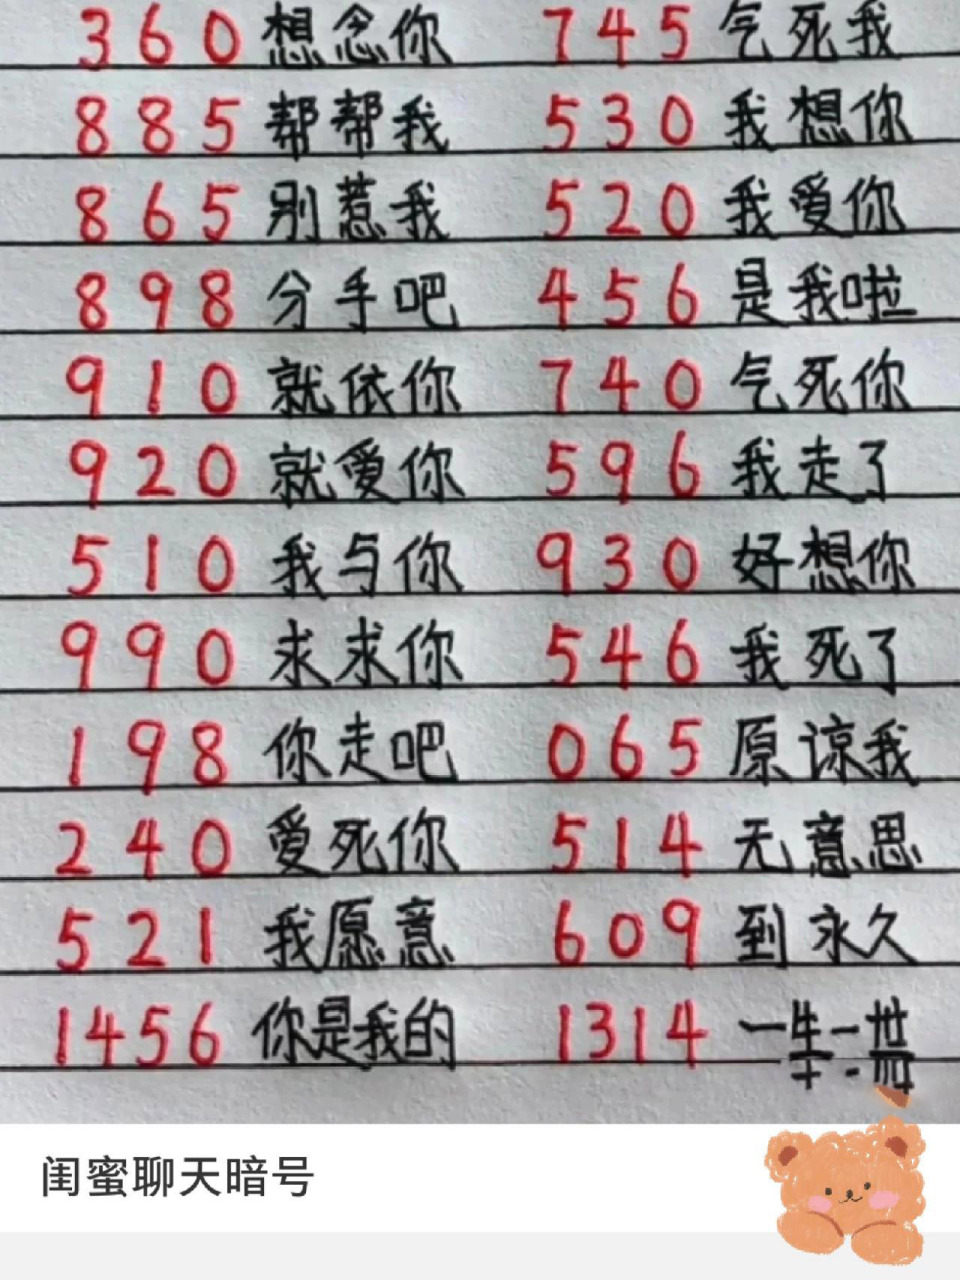 360 想念你 745 气死我
885 帮帮我 530 我想你
865 别惹我 520 我爱你
898 分手吧 456 是我啦
910 就依你 740 气死你
920 就爱你 596 我走了
510 我与你 930 好想你
990 求求你 546 我死了
198 你走吧 065 原谅我
240 爱死你 514 无意思
521 我愿意 609 到永久
1456 你是我的 1314 一生一世
闺蜜聊天暗号